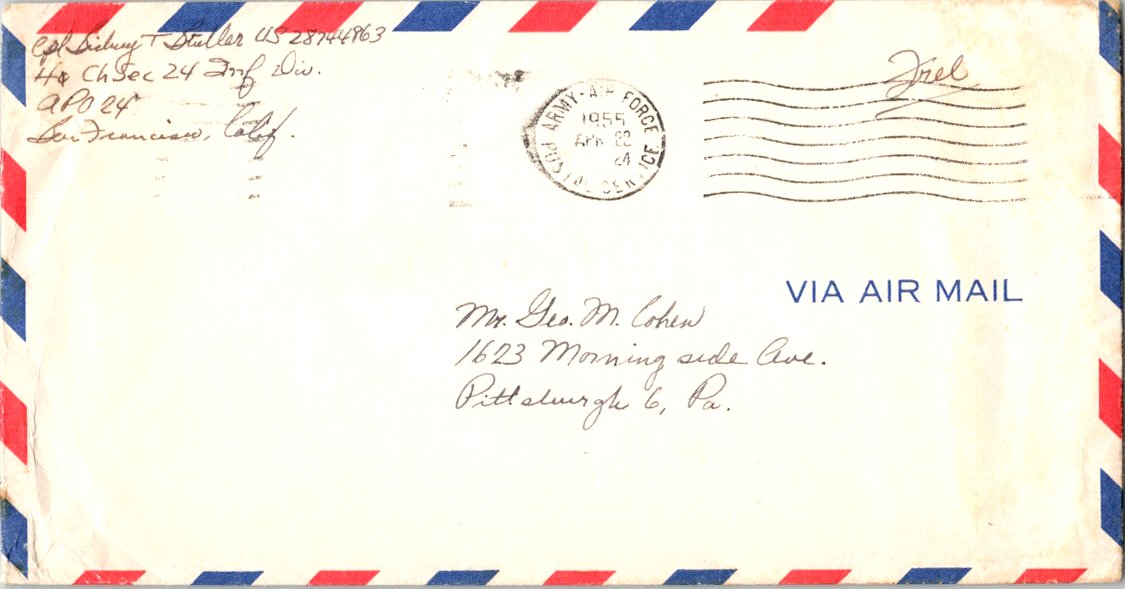 Cpl Sidney T Stuller US 28744863
Hq Ch Sec 24 Inf Div.
APO 24
San Francisco, Calif.
Free
ARMY-AIR FORCE
POSTAL SERVICE
1955
APR 22
24
VIA AIR MAIL
Mr. Geo. M. Cohen
1623 Morningside Ave.
Pittsburgh 6, Pa.